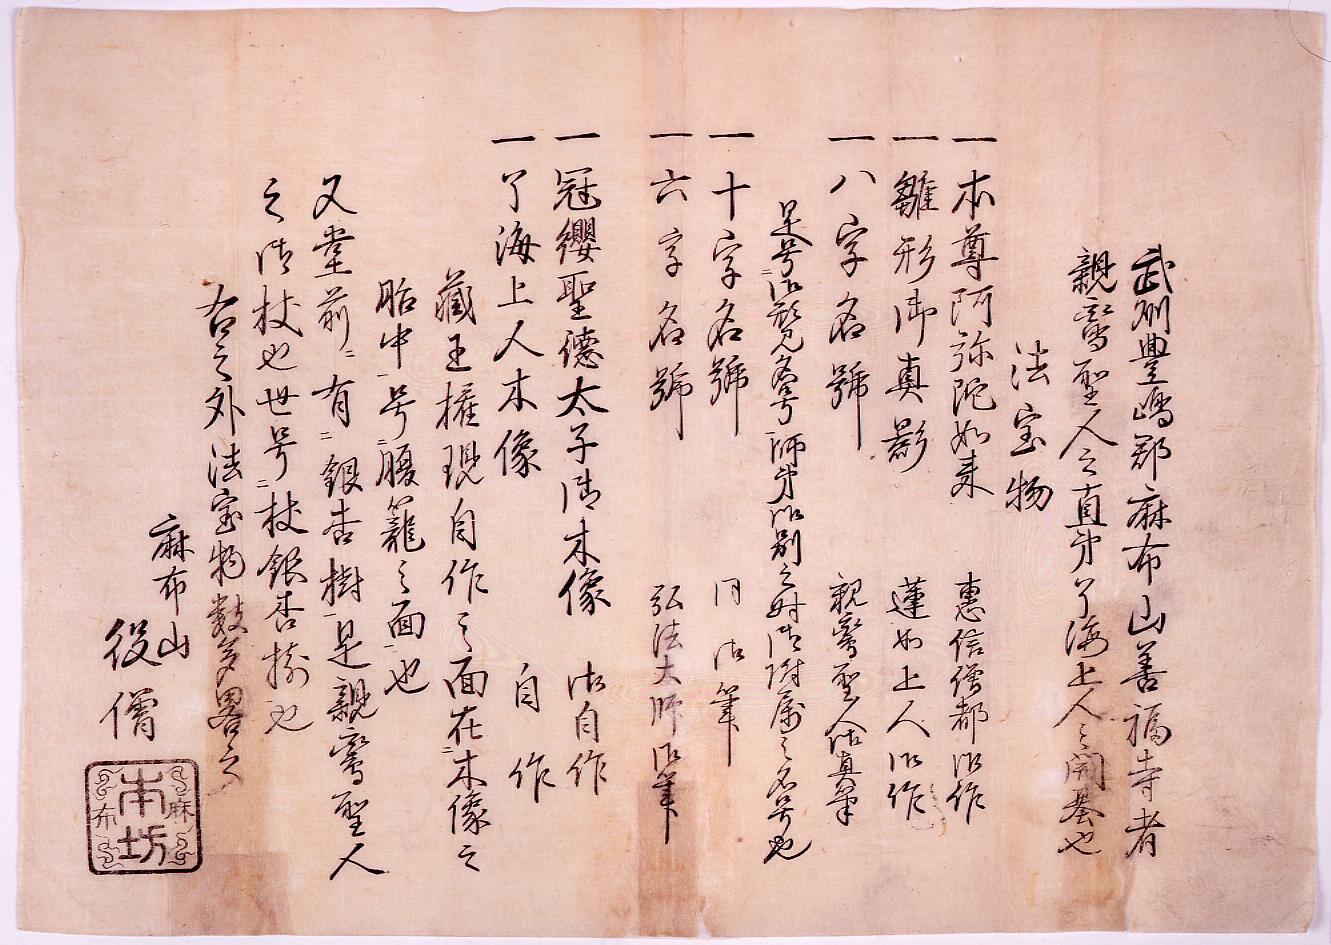 武州豊嶋郡麻布山善福寺者
親鸞聖人之直弟了海上人之開基也
法宝物
一本尊阿弥陀如来 恵信僧都御作
一雛形御真影 蓮如上人御作
一八字名號 親鸞聖人御真筆
是号御形見名号師弟御別之時御附属之名号也
一十字名號 同御筆
一六字名號 弘法大師御筆
一冠纓聖徳太子御木像 御自作
一了海上人木像 自作
蔵王権現自作之面在木像之
胎中号腹籠之面也
又堂前ニ有ニ銀杏樹是親鸞聖人
之御杖也世号ニ杖銀杏樹也
右之外法宝物数多畧之
麻布山
役僧
麻布
本坊